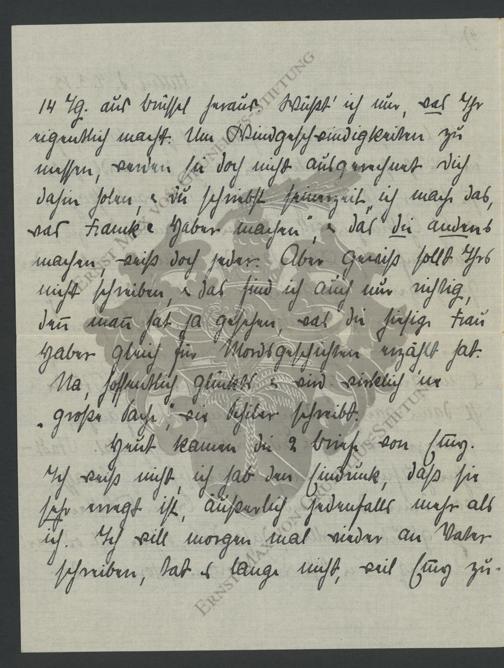 14 Tg. aus Brüssel heraus. Wüßt' ich nur, was Ihr
eigentlich macht. Um Windgeschwindigkeiten zu
messen, werden sie doch nicht ausgerechnet Dich
dahin holen, & du schriebst seinerzeit „ich mach das,
was Franck & Haber machen", & das die anders
machen, weiß doch jeder. Aber gewiß sollt Ihrs
nicht schreiben, & das find ich auch nur richtig,
deñ mañ hat ja gesehen, was die hiesige Frau
Haber gleich für Mordsgeschichten erzählt hat.
Na, hoffentlich glückts & wird wirklich 'ne
„große Sache" wie schreibt.
Heut kamen die 2 Briefe von Emy.
Ich weiß nicht, ich hab den Eindruck, daß sie
sehr erregt ist, äußerlich jedenfalls mehr als
ich. Ich will morgen mal wieder an Vater
schreiben, tat es lange nicht, weil Emy zu-
ERNST MAX VON GRUNELIUS-STIFTUNG
ERNST MAX VON GRUNELIUS-STIFTUNG